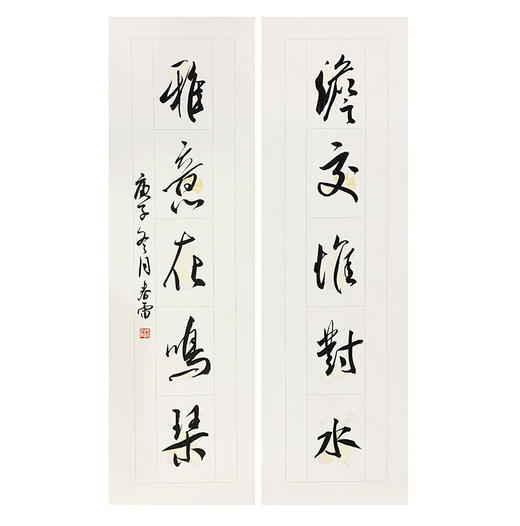 澹交惟對水
雅意在鳴琴
庚子冬月春雷